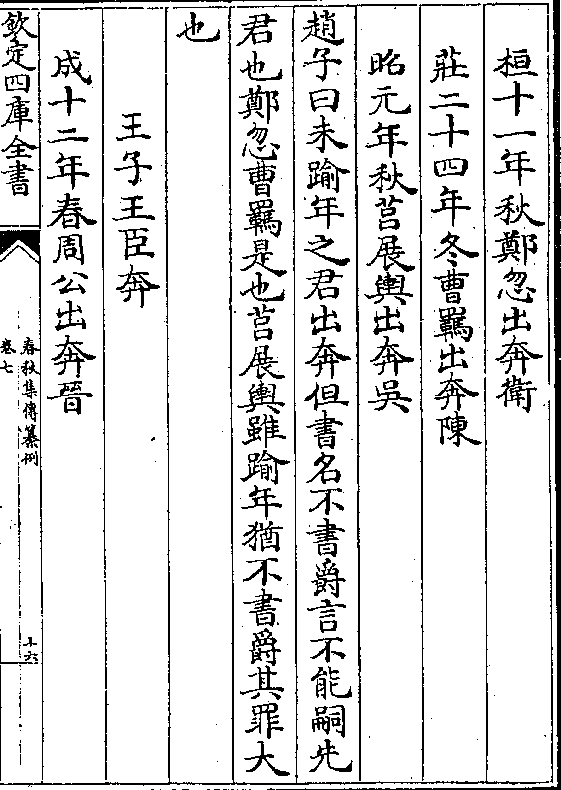 桓十一年秋鄭忽出奔衛
莊二十四年冬曹羈出奔陳
昭元年秋莒展輿出奔吳
趙子曰未踰年之君出奔但書名不書爵言不能嗣先
君也鄭忽曹羈是也莒展輿雖踰年猶不書爵其罪大
也
王子王臣奔
成十二年春周公出奔晉
欽定四庫全書
春秋集傳纂例
卷七
十六